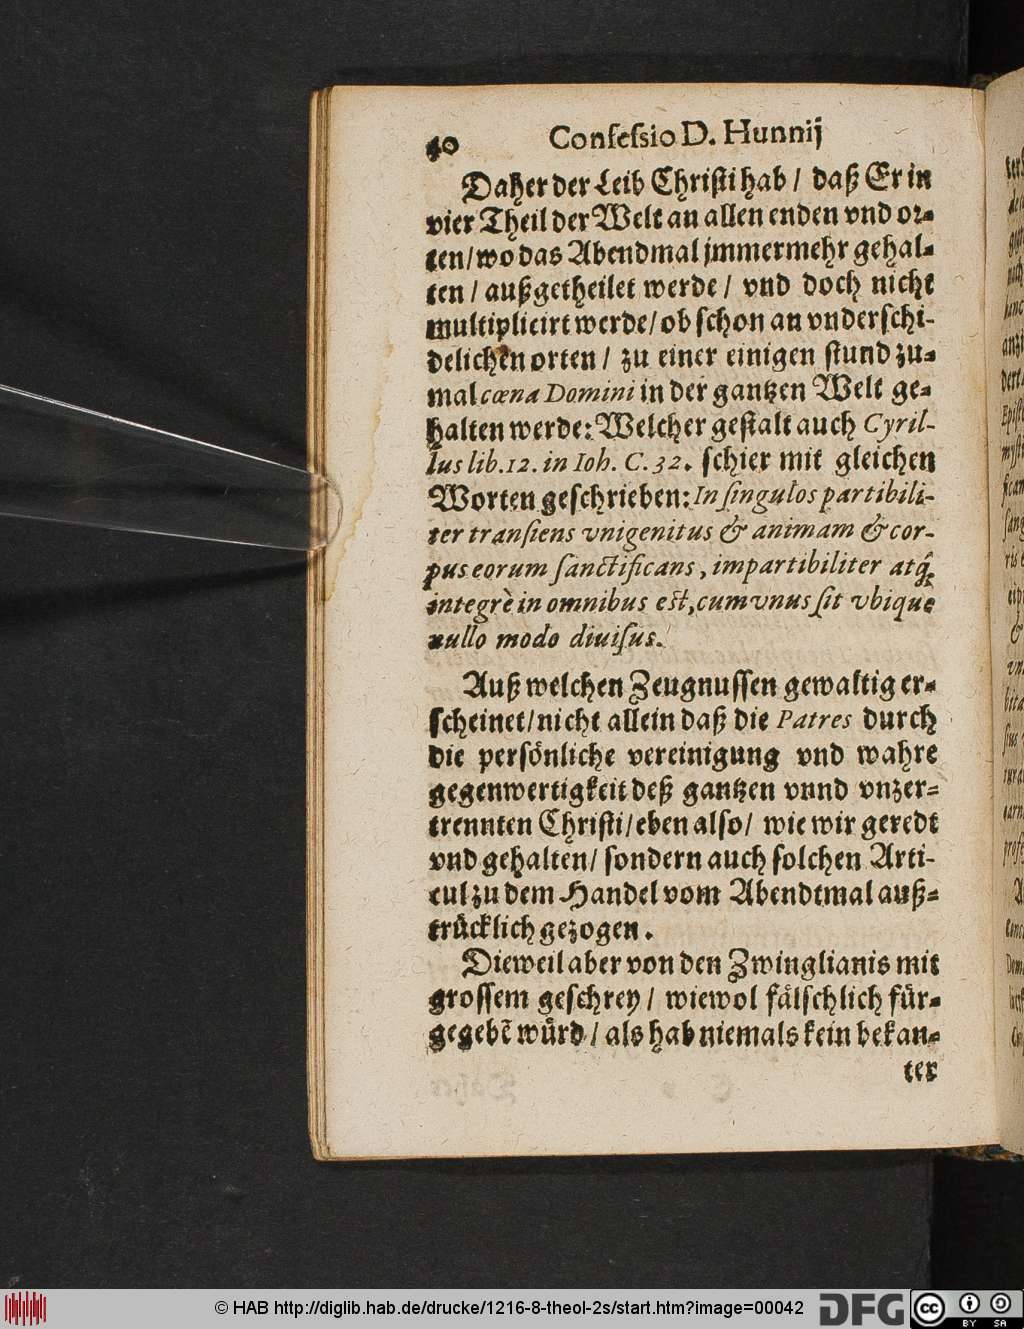 40 Confeſsio D. Hunnij
Daher der Leib Chriſti hab / daß Er in
vier Theil der Welt an allen enden vnd or-
ten / wo das Abendmal jmmermehr gehal-
ten / außgetheilet werde / vnd doch nicht
multiplicirt werde / ob ſchon an vnderſchi-
delichen orten / zu einer einigen ſtund zu-
mal cœna Domini in der gantzen Welt ge-
halten werde: Welcher geſtalt auch Cyril-
lus lib. 12. in Ioh. C. 32. ſchier mit gleichen
Worten geſchrieben: In ſingulos partibili-
ter tranſiens vnigenitus & animam & cor-
pus eorum ſanctificans, impartibiliter atq́;
integrè in omnibus eſt, cum vnus ſit vbique
nullo modo diuiſus.
Auß welchen Zeugnuſſen gewaltig er-
ſcheinet / nicht allein daß die Patres durch
die perſönliche vereinigung vnd wahre
gegenwertigkeit deß gantzen vnnd vnzer-
trennten Chriſti / eben alſo / wie wir geredt
vnd gehalten / ſondern auch ſolchen Arti-
cul zu dem Handel vom Abendtmal auß-
trücklich gezogen.
Dieweil aber von den Zwinglianis mit
groſſem geſchrey / wiewol fälſchlich für-
gegebẽ würd / als hab niemals kein bekan-
ter
© HAB http://diglib.hab.de/drucke/1216-8-theol-2s/start.htm?image=00042
DFG
cc BY SA